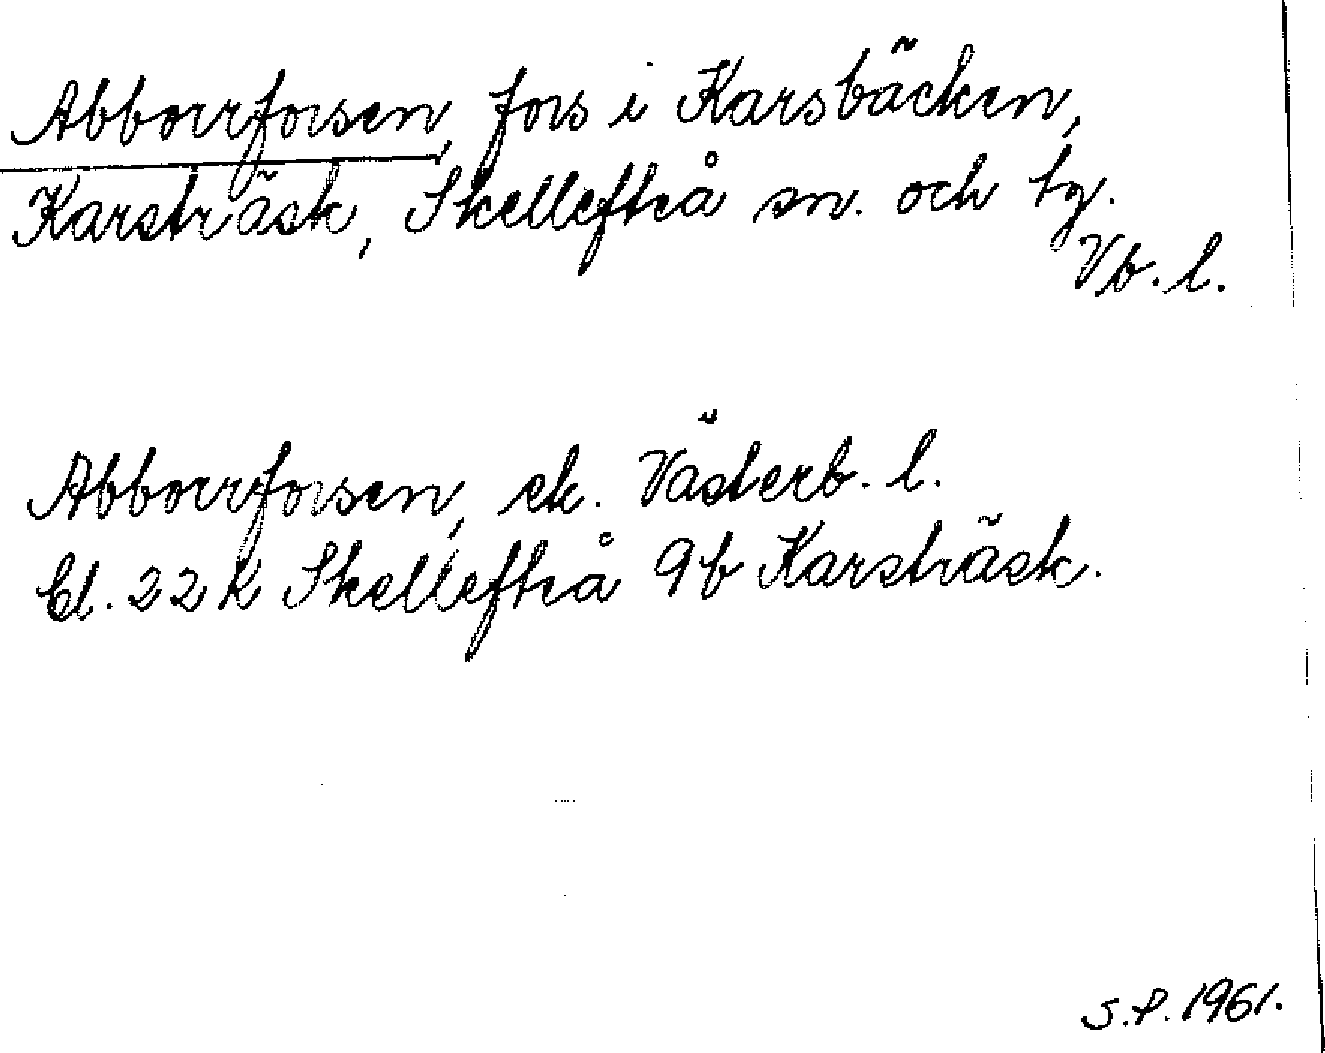 Abborrforsen, fors i Karsbäcken,
Karsträsk, Skellefteå sn. och tg.
Vb. l.
Abborrforsen, ek. Västerb. l.
bl. 22 K Skellefteå 9b Karsträsk.
S.P. 1961.